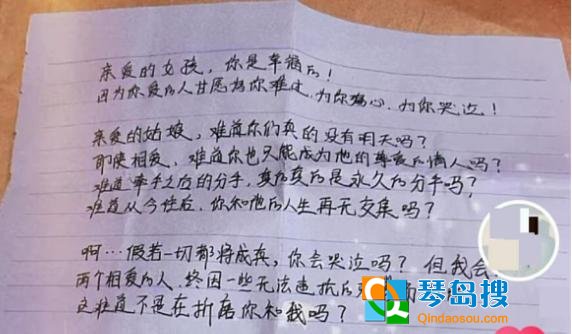 亲爱的女孩，你是幸福的！
因为你爱的人甘愿为你难过，为你伤心，为你哭泣！
亲爱的姑娘，难道你们真的没有明天吗？
即使相爱，难道你也只能成为他的 情人吗？
难道牵手之后的分手，真的真的是永久的分手吗？
难道从今往后，你和他的人生再无交集吗？
啊…假若一切都将成真，你会哭泣吗？但我会
两个相爱的人，终因一些无法抵抗的
这难道不是在折磨你和我吗？
琴岛搜
Qindaosou.com